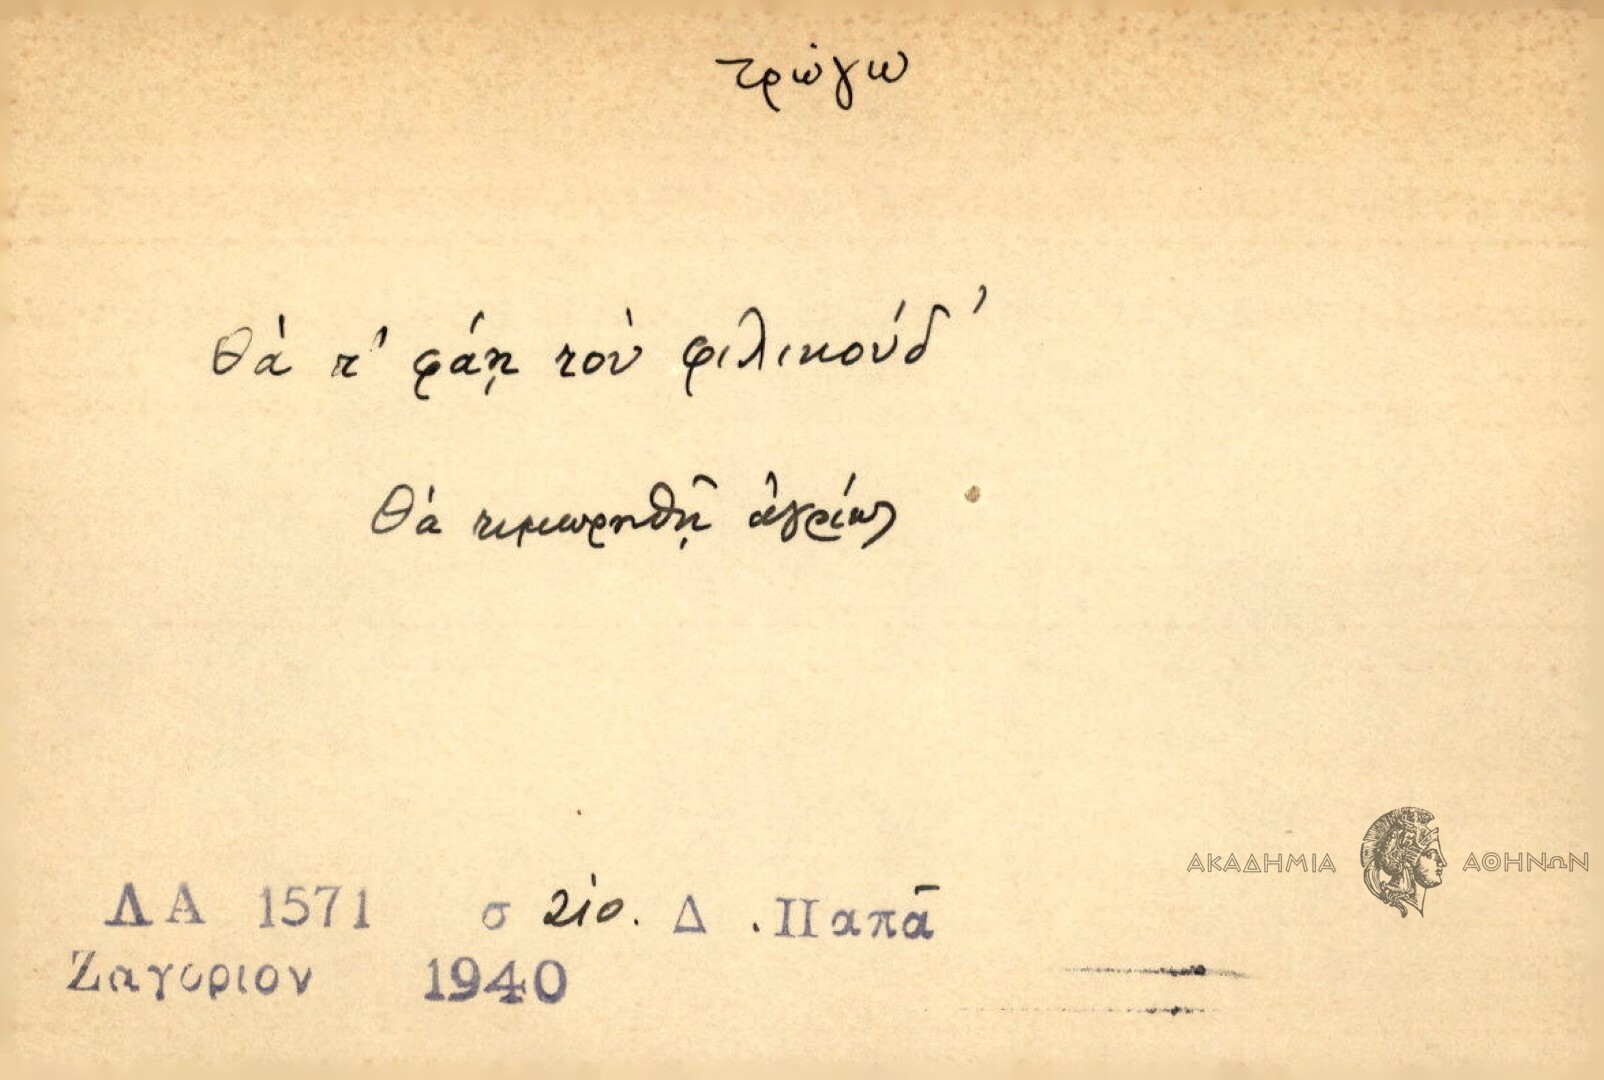 τρώγω
θὰ τ' φάῃ τὸν φιλικούδ'
Θὰ τιμωρηθῇ ἀγρίως
ΑΚΑΔΗΜΙΑ ΑΘΗΝΩΝ
ΛΑ 1571 σ 210. Δ. Παπᾶ
Ζαγόριον 1940